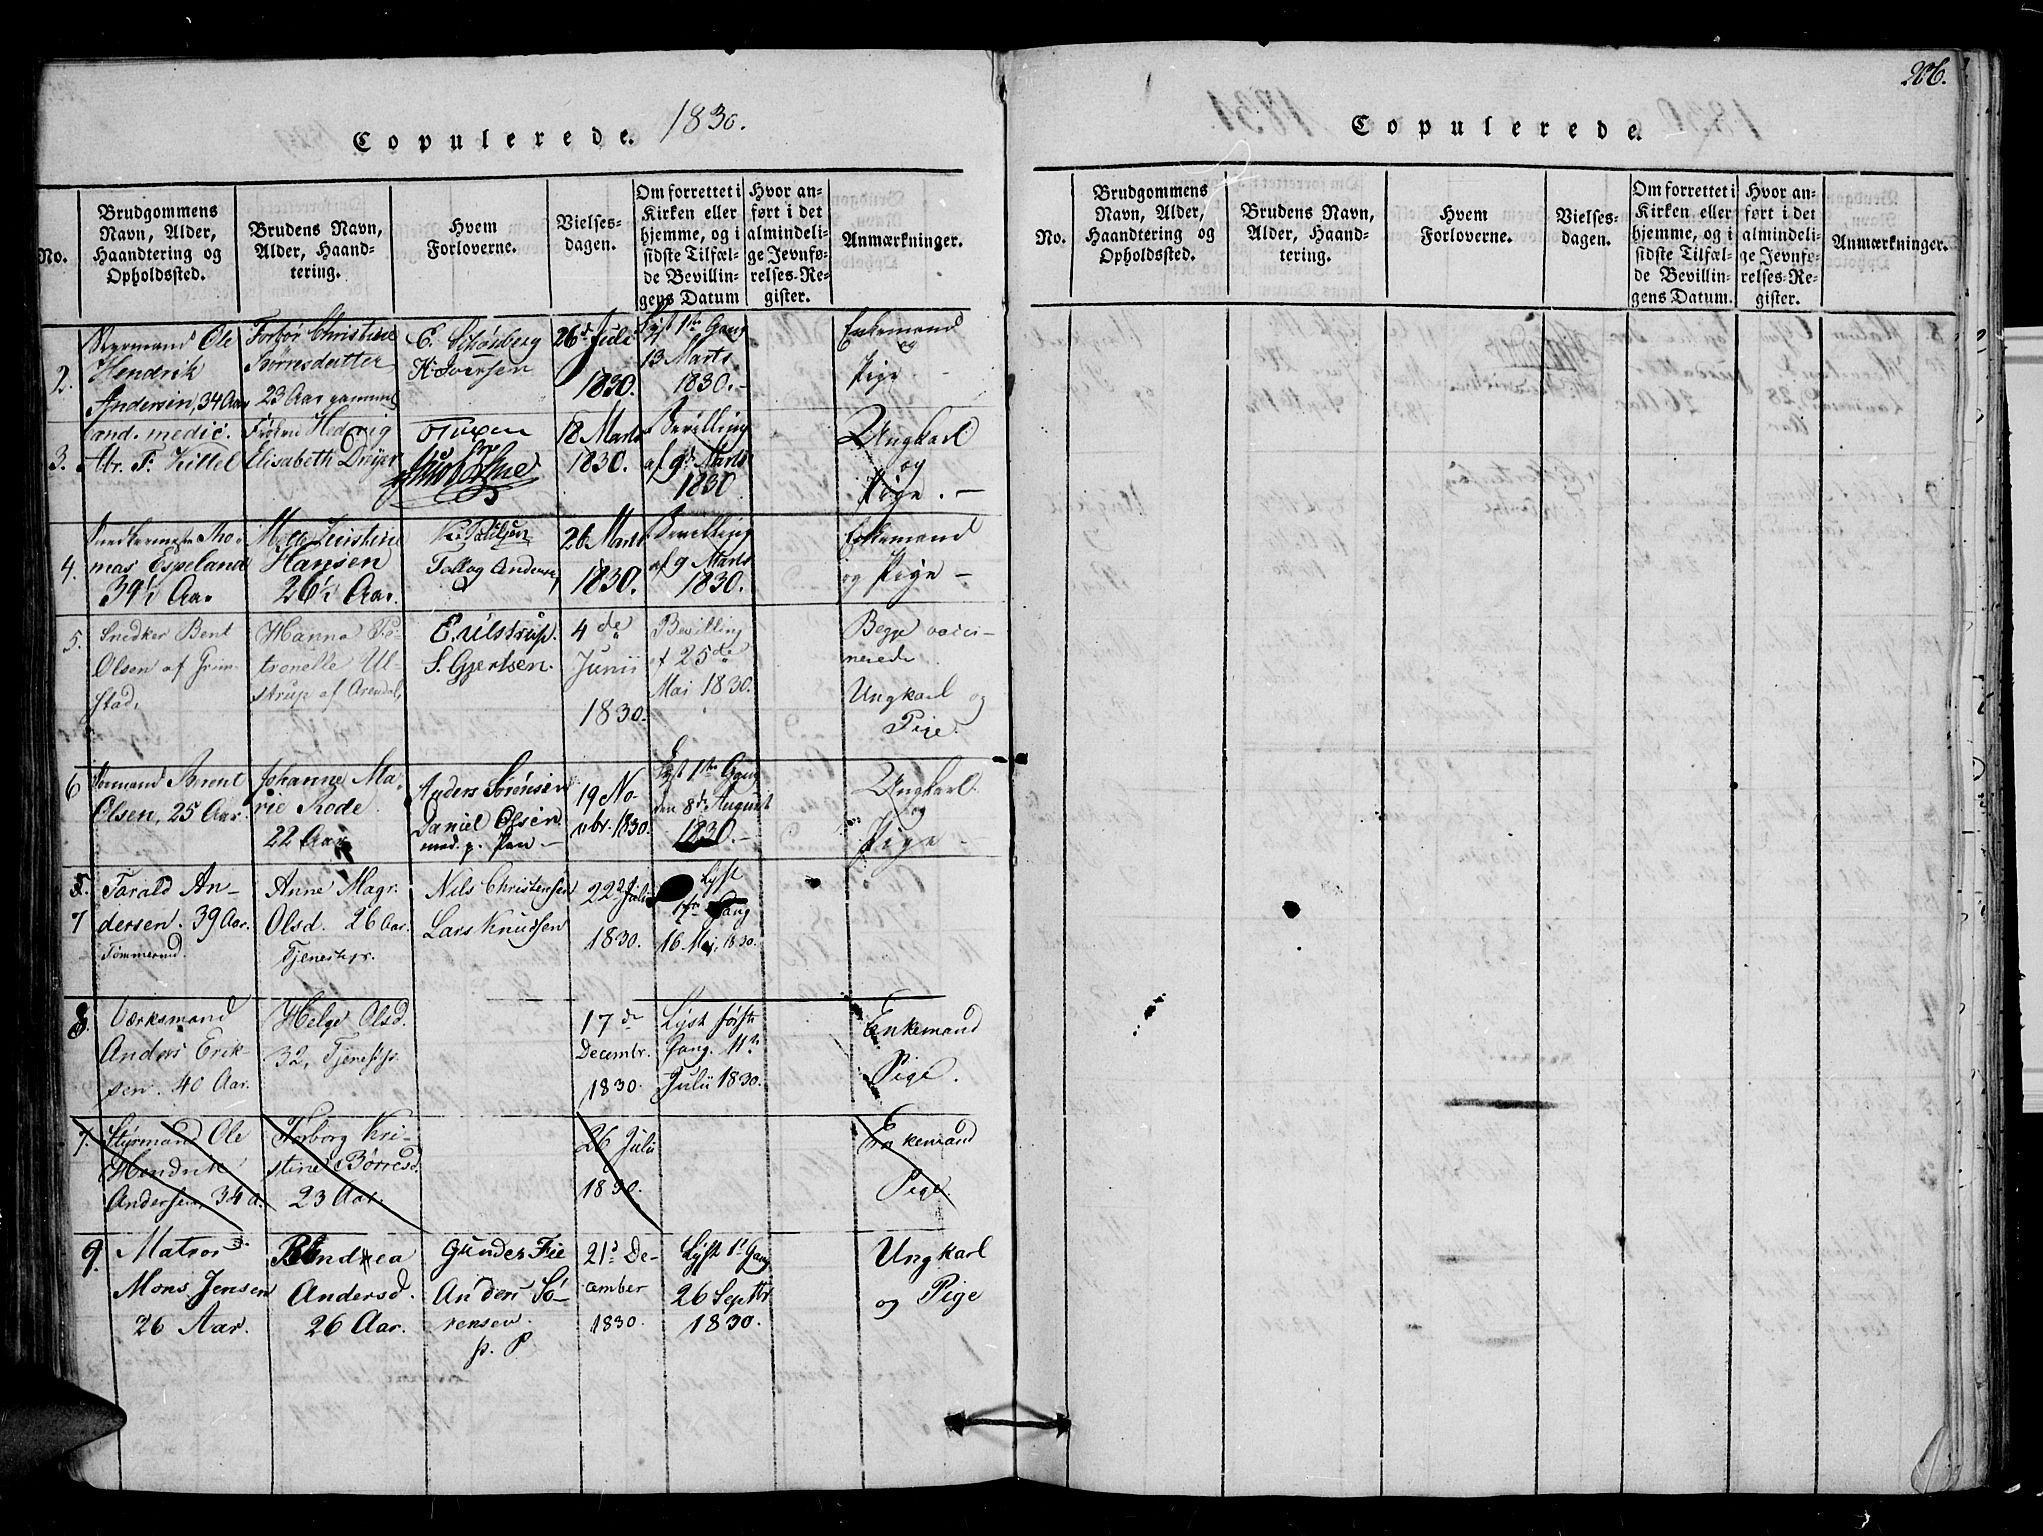 Copulerede. 1830.
No.
Brudgommens
Navn, Alder,
Haandtering og
Opholdssted.
Brudens Navn,
Alder, Haand-
tering.
Hvem
Forloverne.
Vielses-
dagen.
Om forrettet i
Kirken eller
hjemme, og i
sidste Tilfæl-
de Bevillin-
gens Datum
Hvor an-
ført i det
almindeli-
ge Jevnfø-
relses-Re-
gister.
Anmærkninger.
2.
Styrmand Ole
Hendrik
Andersen, 34 Aar
Torbor Christine
Børresdatter
23 Aar gammel
E. Schøsberg
K. Iversen
26d Juli
1830.
Lyst 1ste Gang
13 Marts
1830. -
Enkemand
og
Pige -
3.
Cand. medic.
Ar. F. Kittel
Frøken Hedevig
Elisabeth Dreyer
18 Marts
1830.
Bevilling
af 9d Marts
1830
Ungkarl
og
Pige. -
4.
Snedkermester Tho-
mas Espeland
39½ Aar
Kirstine
Hansen
26½ Aar.
Tallag Andersen
26 Marts
1830.
Bevilling
af 9 Marts
1830.
Enkemand
og Pige -
5.
Snedker Bent
Olsen af Grim-
stad,
Hanna Pe-
tronelle Ul-
strup af Arendal,
E. Ulstrup.
S. Gjertsen.
4de
Junii
1830.
Bevilling
af 25de
Mai 1830.
Begge vacci-
nerede
Ungkarl og
Pige.
6
Børent
Olsen, 25 Aar.
Johanne Ma-
rie Rode
22 Aar
Anders Sørensen
Daniel Olsen
med. p. Pen -
19 No-
vbr. 1830.
Lyst 1ste Gang
den 8de August
1830. -
Ungkarl.
og
Pige -
5.
7
Tarald An-
dersen. 39 Aar.
Tømmermd.
Anne Magr.
Olsd. 26 Aar.
Tjenestpr.
Nils Christensen
Lars Knudsen
22d Juli
1830.
Lyst
1ste Gang
16 Mai, 1830.
8.
Værksmand
Anders Erik-
sen. 40 Aar.
Helge Olsd.
32, Tjenestp.
17de
Decembr.
1830.
Lyst første
Gang. 11te
Julii 1830.
Enkemand
Pige.
7.
Styrmand Ole
Hendrik
Andersen, 34 a.
Torborg Kri-
stine Børresd.
23 Aar.
26 Julii
1830.
Enkemand
Pige.
9.
Matros
Mons Jensen
26 Aar.
Andersd.
26 Aar.
Gunder Fie
Anders Sø-
rensen.
p. P
21d De-
cember
1830.
Lyst 1ste Gang
26 Septbr
1830.
Ungkarl
og Pige
206.
Copulerede.
No.
Brudgommens
Navn, Alder,
Haandtering og
Opholdssted.
Brudens Navn,
Alder, Haand-
tering.
Hvem
Forloverne.
Vielses-
dagen.
Om forrettet i
Kirken eller
hjemme, og i
sidste Tilfæl-
de Bevillin-
gens Datum.
Hvor an-
ført i det
almindeli-
ge Jevnfø-
relses-Re-
gister.
Anmærkninger.